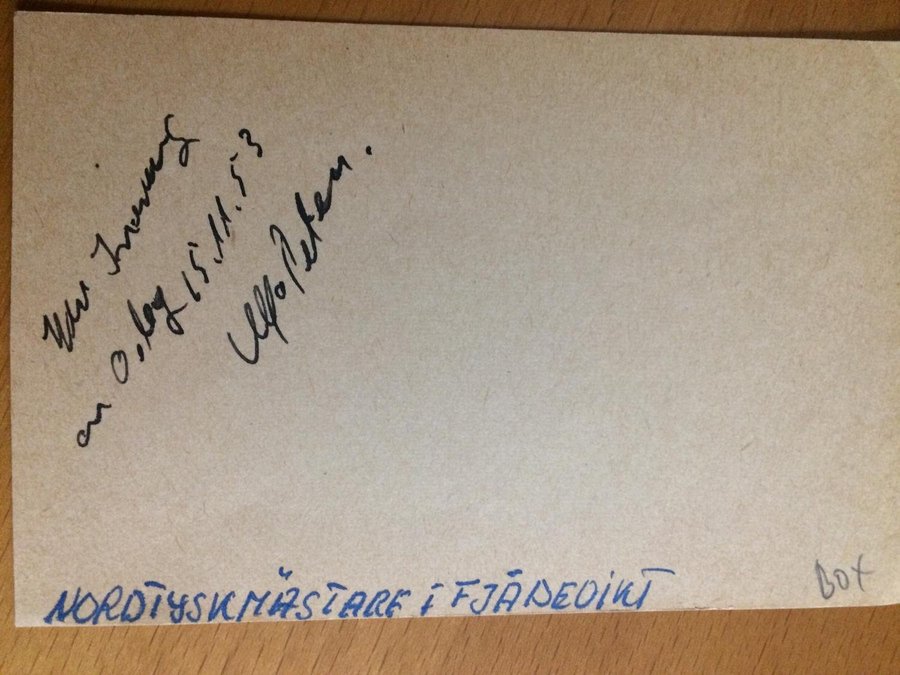 Zur Erinnerung
an Oslog 15.11.53
Uffo Petersen.
NORDTYSKMÄSTARE I FJÄDEVIKT
BOX